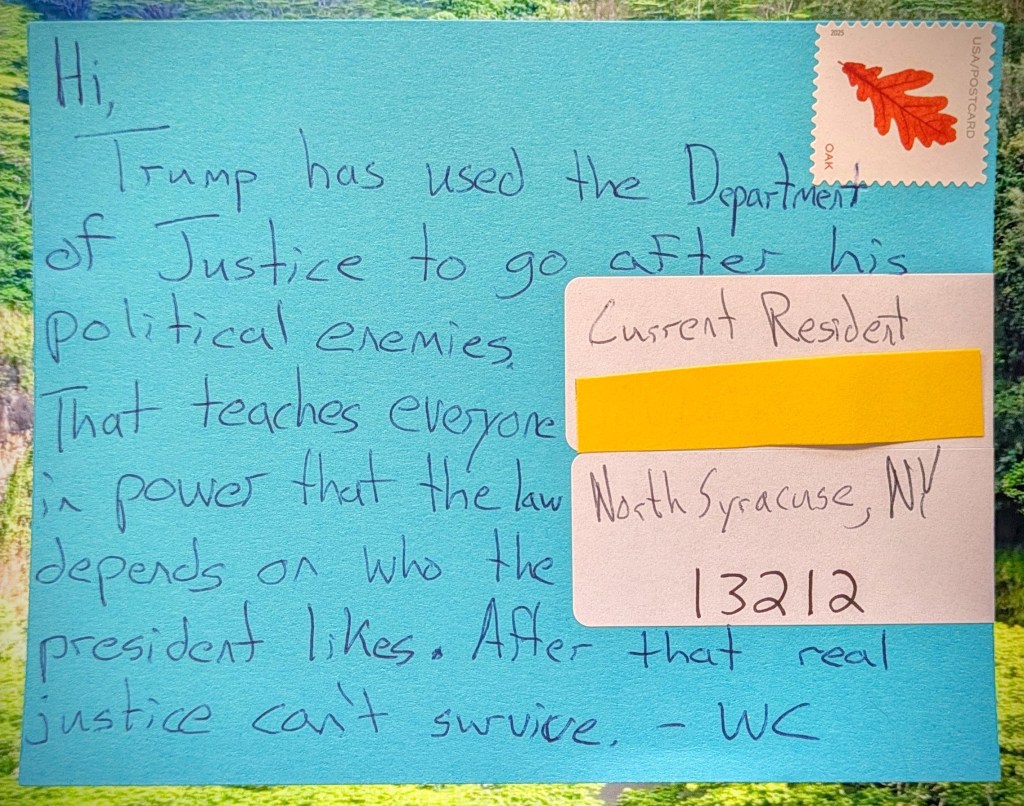 Hi,
2025
USA/POSTCARD
OAK
Trump has used the Department
of Justice to go after his
political enemies.
That teaches everyone
in power that the law
depends on who the
president likes. After that real
justice can't survive. - WC
Current Resident
North Syracuse, NY
13212